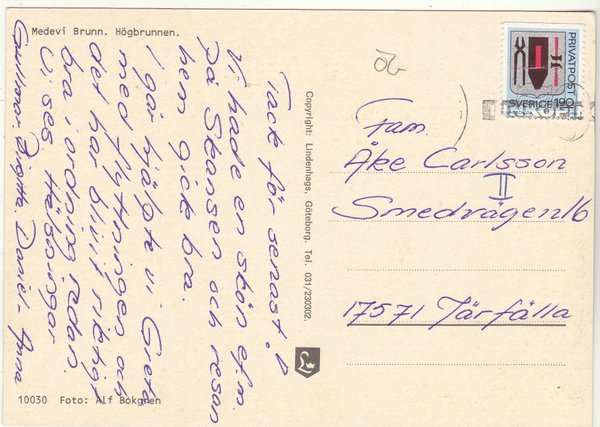 Medevi Brunn. Högbrunnen.
Tack för senast!
Vi hade en skön e.f.m.
på Skansen och resan
hem gick bra.
I går hjälpte vi Greta
med flyttningen och
det har blivit riktigt
bra i ordning redan.
Vi ses Hälsningar
Birgitta. Daniel. Anna
10030 Foto: Alf Bokgren
Copyright: Lindenhags. Göteborg. Tel. 031/230302.
PRIVATPOST
SVERIGE 190
20
Fam.
Åke Carlsson
II
Smedvägen 16
17571 Järfälla